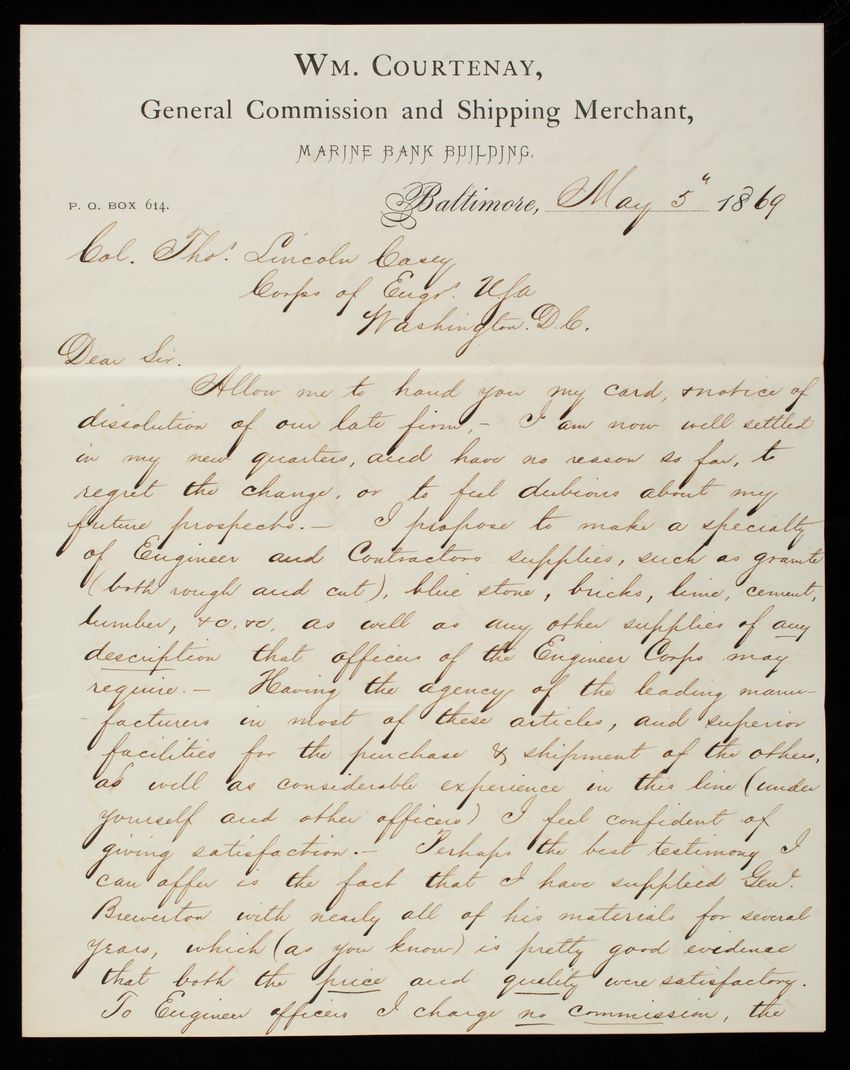 WM. COURTENAY,
General Commission and Shipping Merchant,
MARINE BANK BUILDING,
P. O. BOX 614.
Baltimore, May 5" 1869
Col. Thos. Lincoln Casey
Corps of Engrs. USA
Washington. D.C.
Dear Sir.
Allow me to hand you my card, & notice of
dissolution of our late firm, - I am now well settled
in my new quarters, and have no reason so far, to
regret the change, or to feel dubious about my
future prospects. - I propose to make a specialty
of Engineer and Contractors supplies, such as granite
(both rough and cut), blue stone, bricks, lime, cement,
lumber, &c, &c, as well as any other supplies of any
description that officers of the Engineer Corps may
require. - Having the agency of the leading manu-
-facturers in most of these articles, and superior
facilities for the purchase & shipment of the others,
as well as considerable experience in this line (under
yourself and other officers) I feel confident of
giving satisfaction. - Perhaps the best testimony I
can offer is the fact that I have supplied Genl.
Brewerton with nearly all of his materials for several
years, which (as you know) is pretty good evidence
that both the price and quality were satisfactory.
To Engineer officers I charge no commission, the